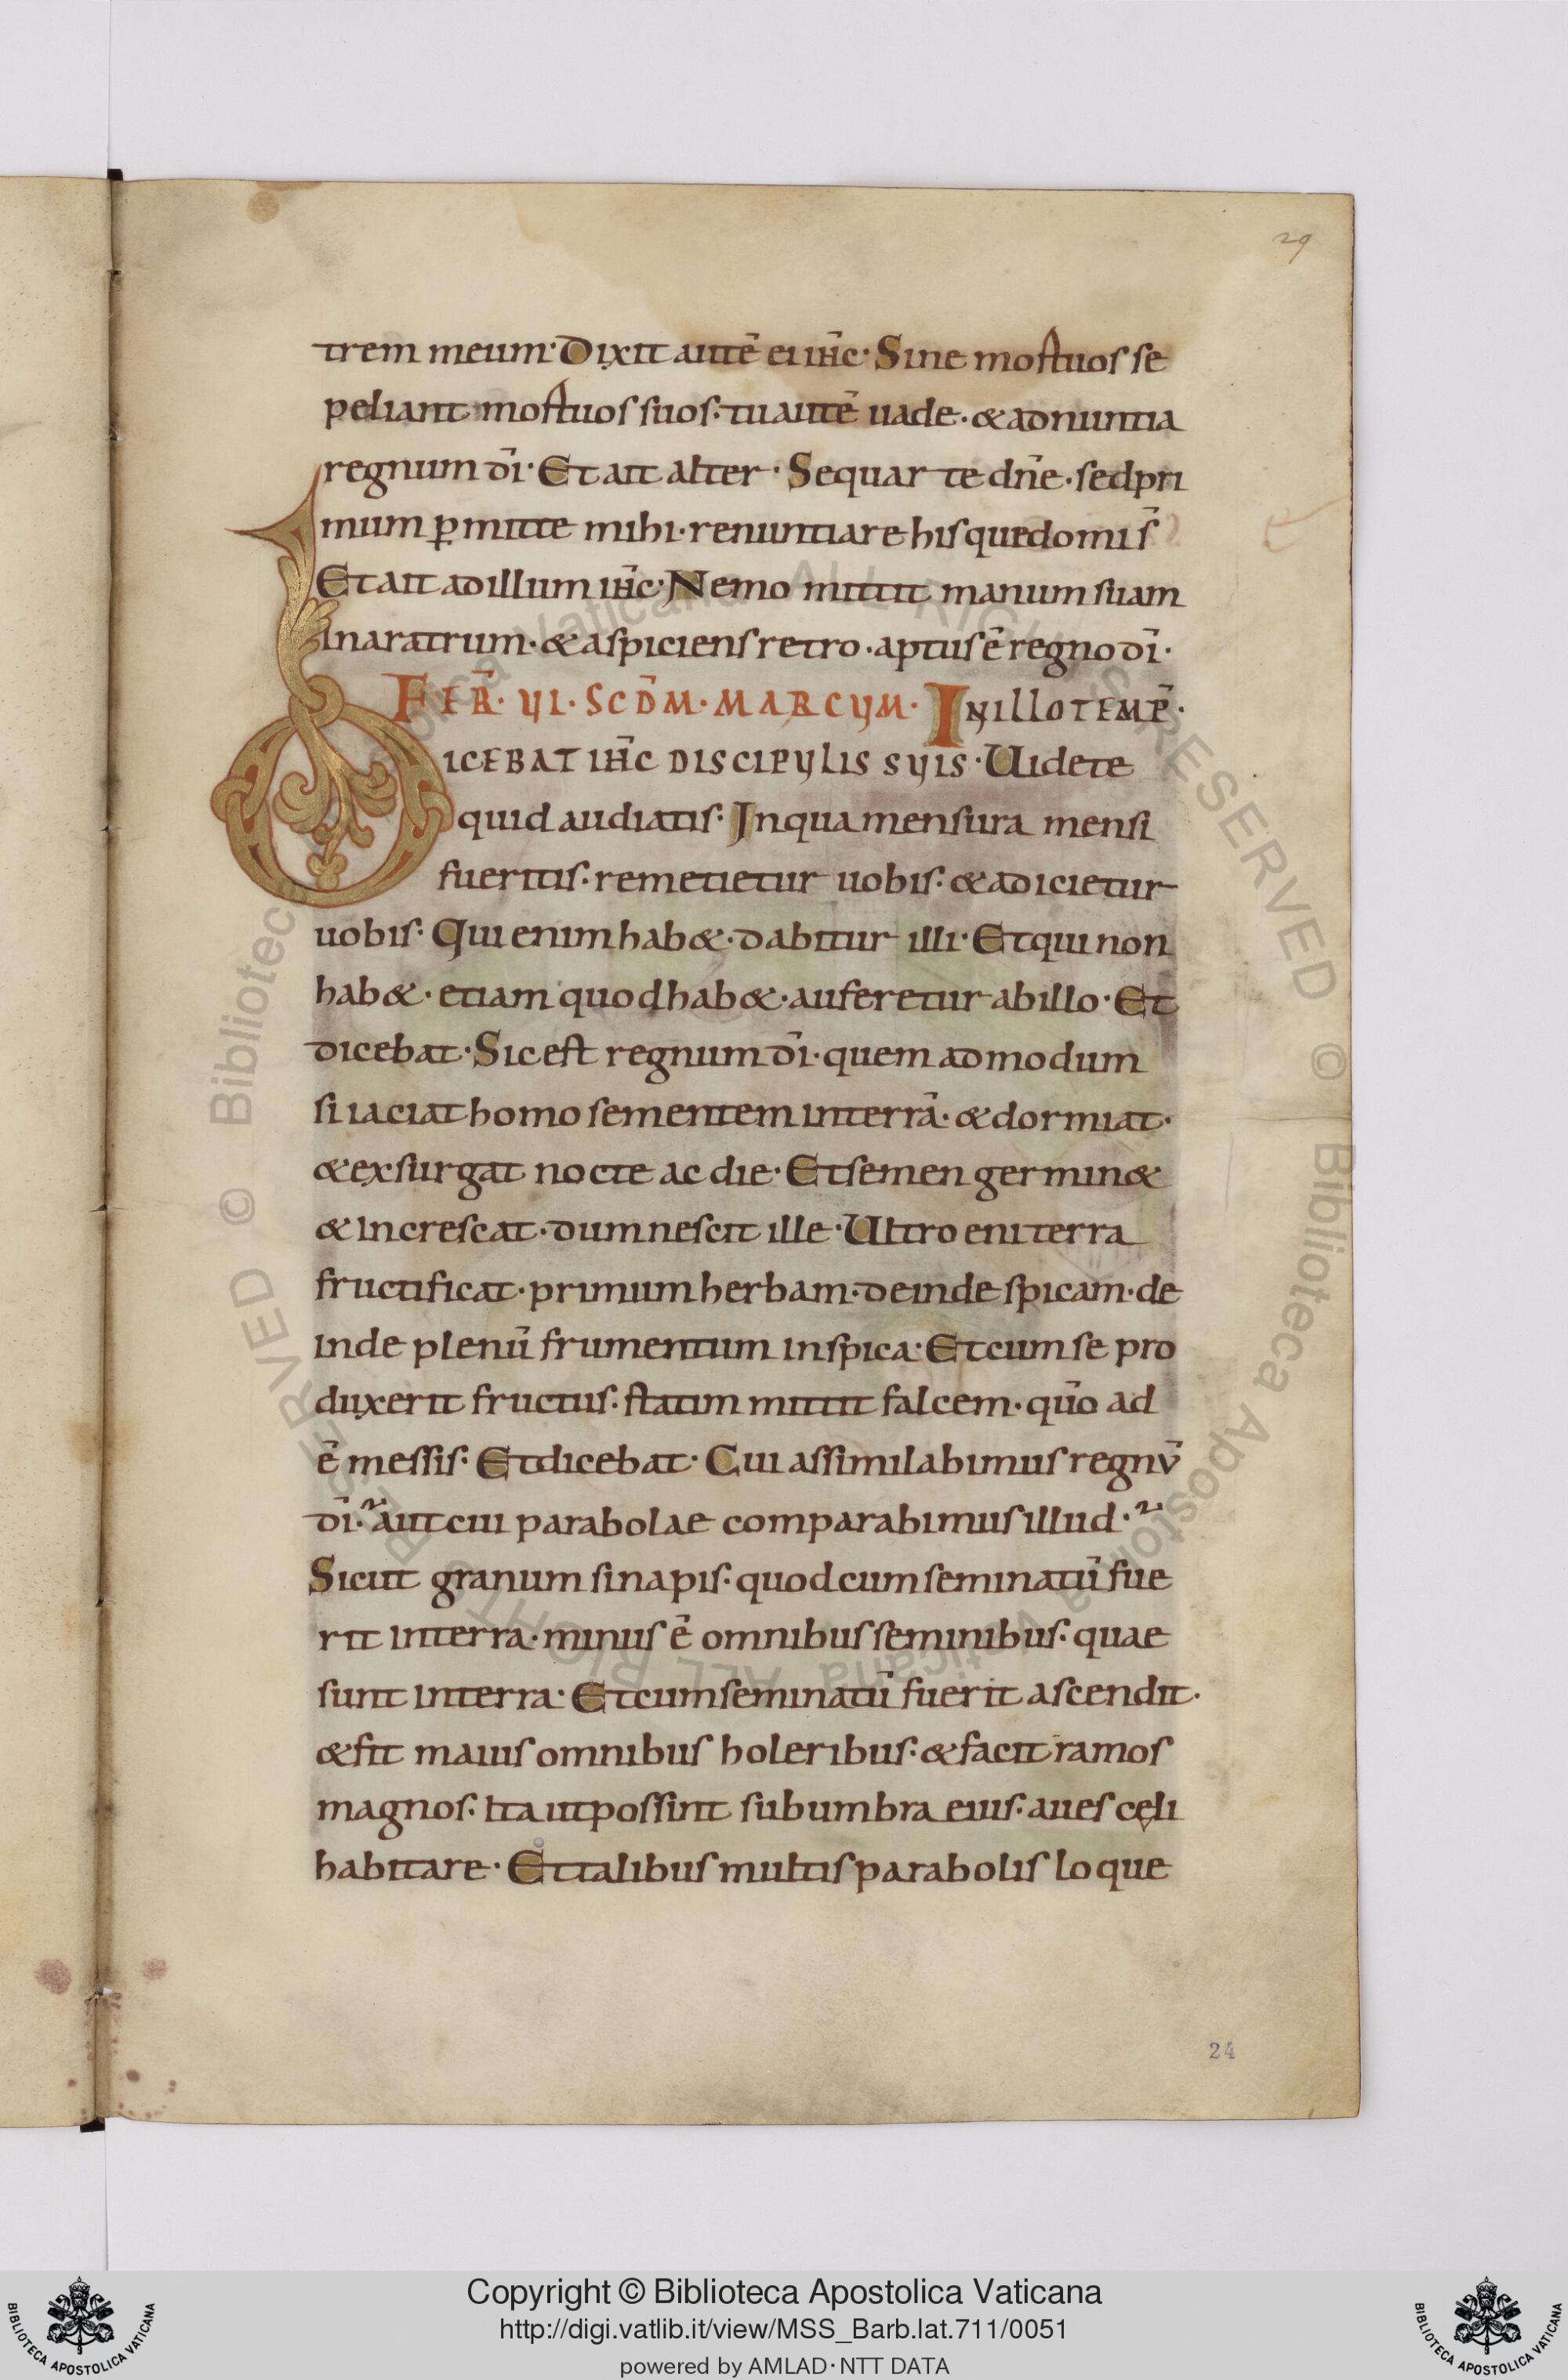 29
trem meum· Dixit autē ei ih̅c· Sine mortuos se
peliant mortuos suos· tu autē uade· & adnuntia
regnum dī· Et ait alter· Sequar te dn̄e· sed pri
mum ꝑmitte mihi· renuntiare his que domi s̄
Et ait ad illum ih̅c· Nemo mittit manum suam
In aratrum· & aspiciens retro· aptus ē regno dī·
FER̄· VI· SCD̄M· MARCUM· IN ILLO TEMP̄·
DICEBAT IH̅C DISCIPULIS SUIS· Uidete
quid audiatis· In qua mensura mensi
fueritis· remetietur uobis· & adicietur
uobis· Qui enim hab&· dabitur illi· Et qui non
hab&· etiam quod hab&· auferetur ab illo· Et
dicebat· Sic est regnum dī· quem ad modum
si iaciat homo sementem in terrā· & dormiat·
& exsurgat nocte ac die· Et semen germin&
& increscat· dum nescit ille· Ultro eni terra
fructificat· primum herbam· deinde spicam· de
inde plenū frumentum in spica· Et cum se pro
duxerit fructus· statim mittit falcem· qūo ad
ē messis· Et dicebat· Cui assimilabimus regnv̄
dī· aut cui parabolae comparabimus illud·
Sicut granum sinapis· quod cum seminatū fue
rit in terra· minus ē omnibus seminibus· quae
sunt in terra· Et cum seminatū fuerit ascendit·
& fit maius omnibus holeribus· & facit ramos
magnos· Ita ut possint sub umbra eius· aues cęli
habitare· Et talibus multis parabolis loque
24
© Biblioteca Apostolica Vaticana ALL RIGHTS RESERVED
© Biblioteca Apostolica Vaticana ALL RIGHTS RESERVED
Copyright © Biblioteca Apostolica Vaticana
http://digi.vatlib.it/view/MSS_Barb.lat.711/0051
powered by AMLAD·NTT DATA
BIBLIOTECA APOSTOLICA VATICANA
BIBLIOTECA APOSTOLICA VATICANA